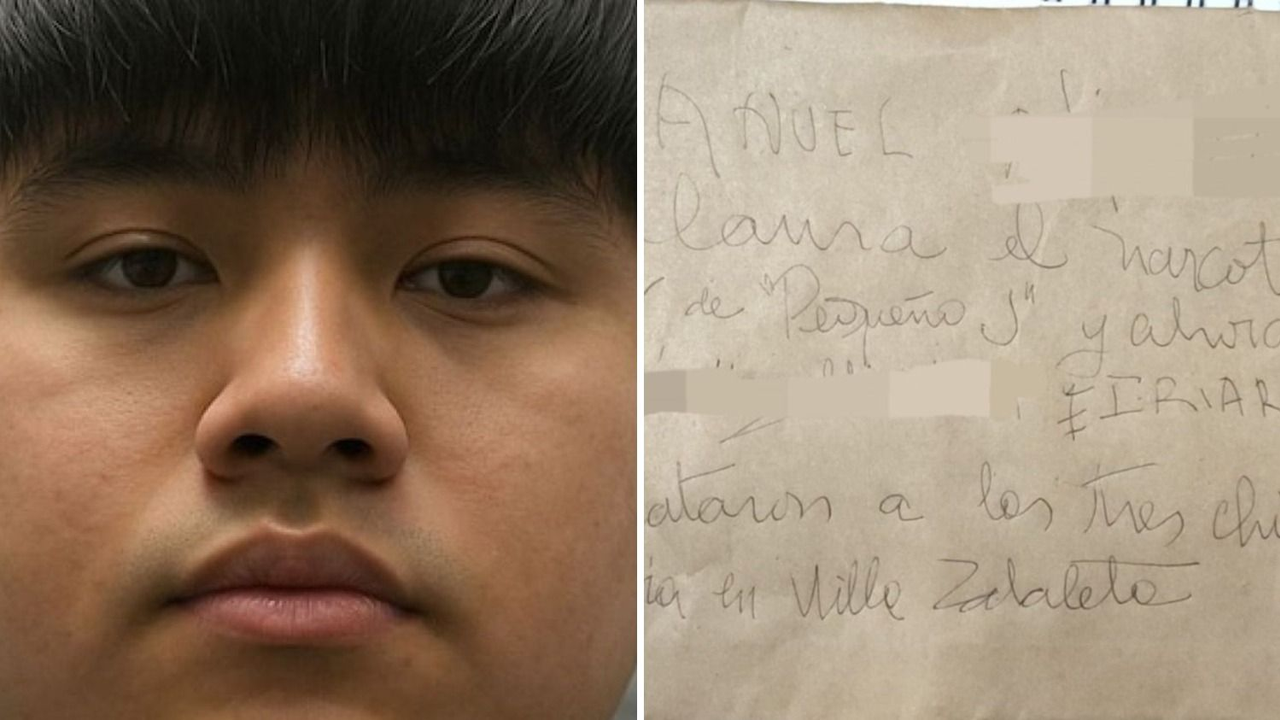 AÑUEL
laura el narcot
de "Pequeño J" y ahora
IRIAR
ataron a las tres chi
ia en Villa Zabaleta